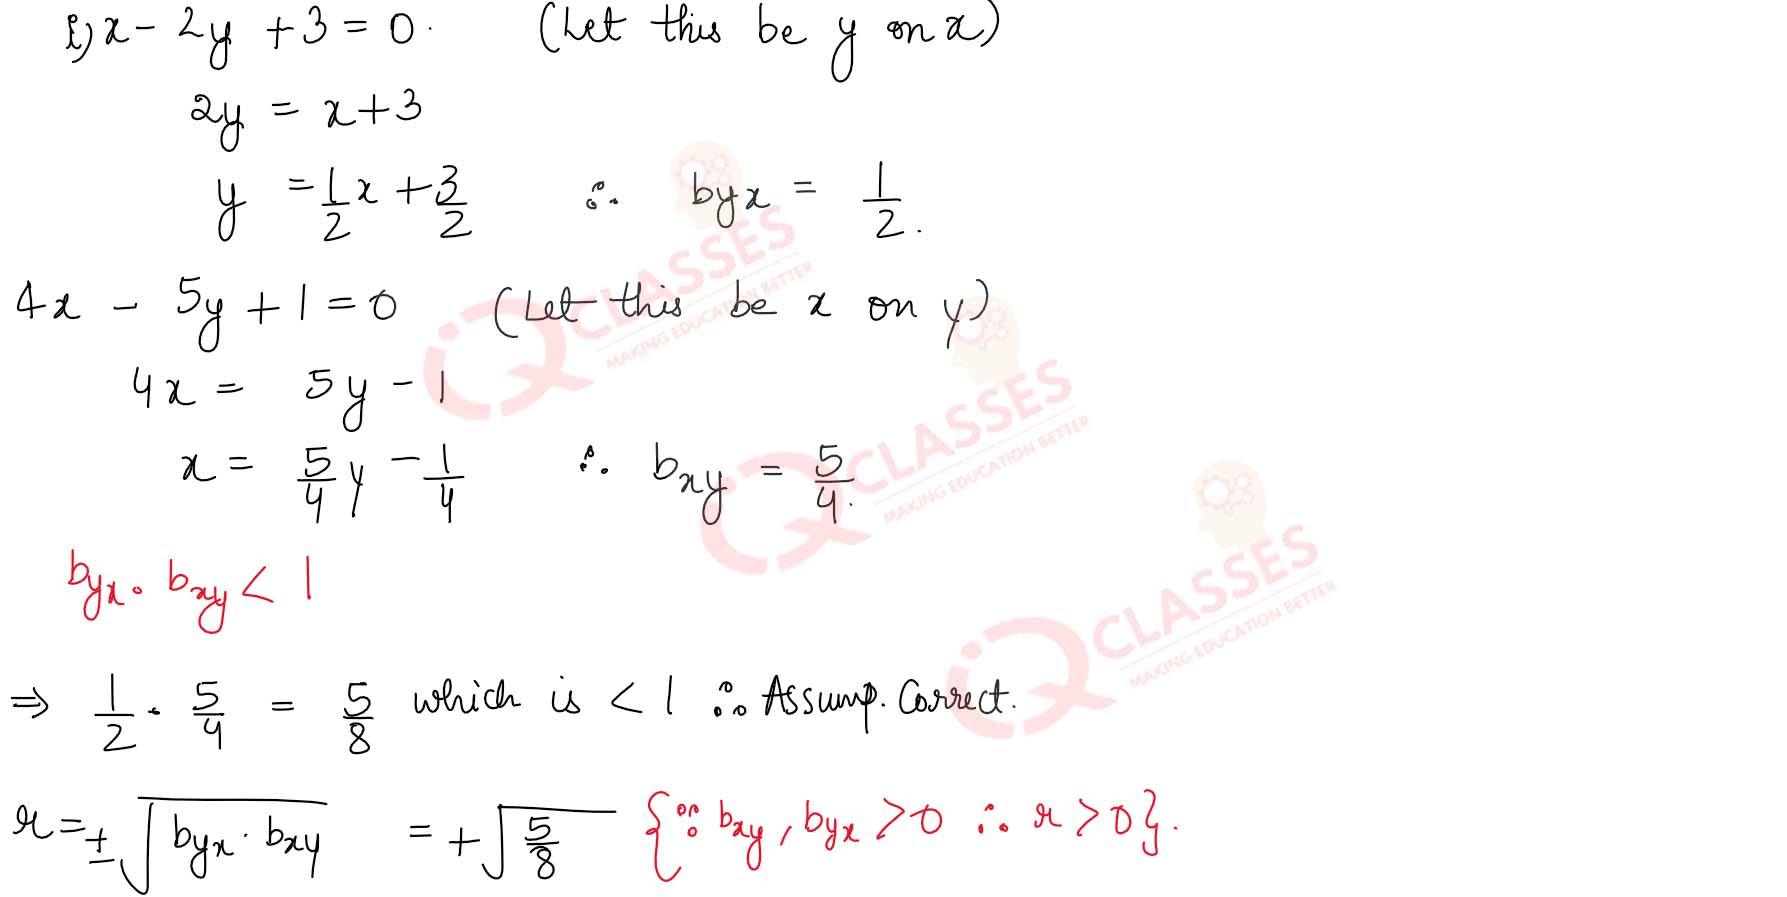 i) x - 2y + 3 = 0. (Let this be y on x)
2y = x + 3
y = 1/2 x + 3/2 ∴ byx = 1/2.
4x - 5y + 1 = 0 (Let this be x on y)
4x = 5y - 1
x = 5/4 y - 1/4 ∴ bxy = 5/4.
byx . bxy < 1
⇒ 1/2 . 5/4 = 5/8 which is < 1 ∴ Assump. Correct.
r = ± √(byx . bxy) = + √(5/8) {∵ bxy, byx > 0 ∴ r > 0}.
iQ CLASSES
MAKING EDUCATION BETTER
iQ CLASSES
MAKING EDUCATION BETTER
iQ CLASSES
MAKING EDUCATION BETTER